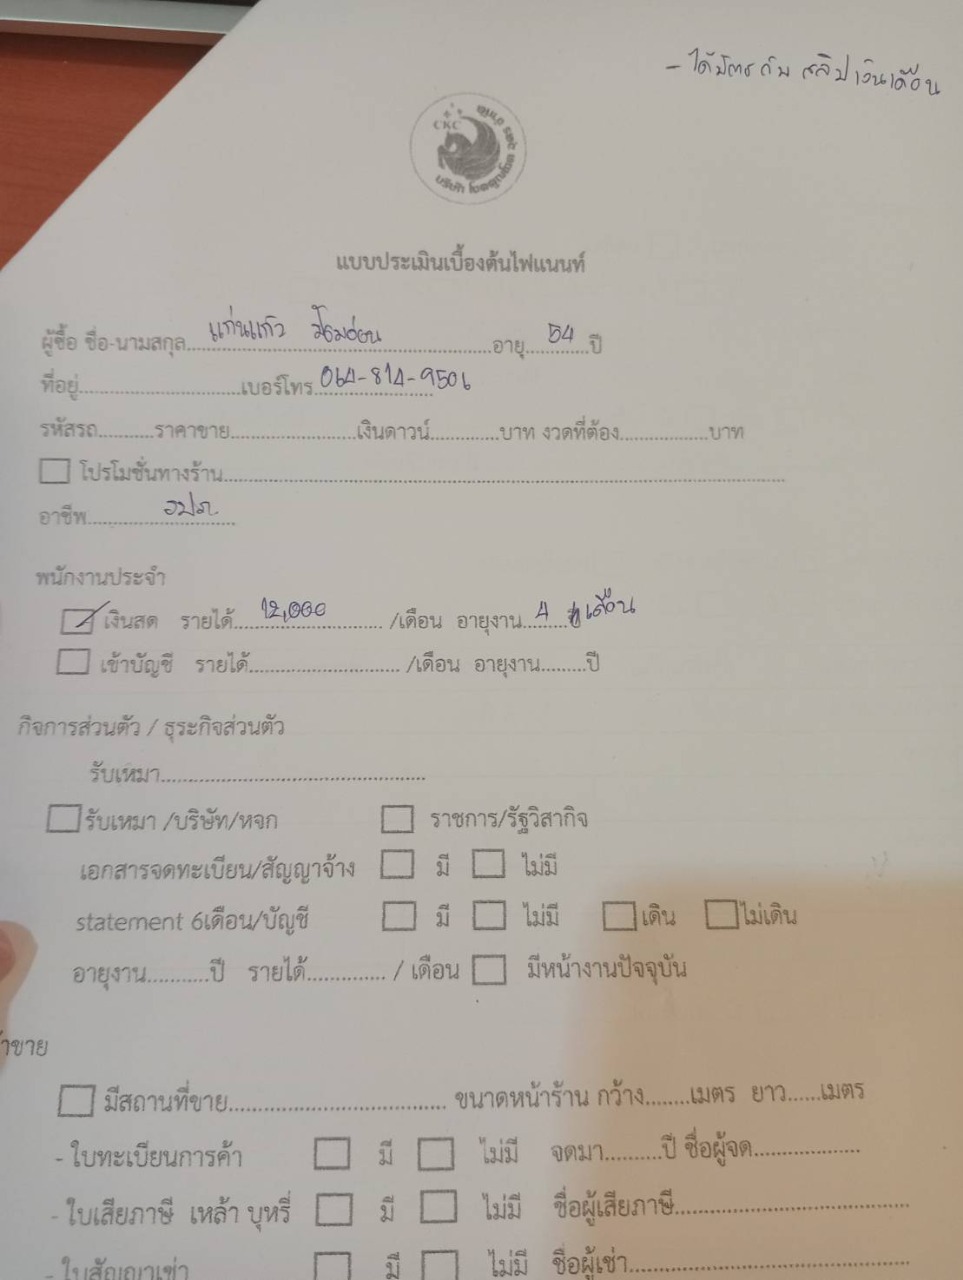 - ได้บัตร กับ สลิปเงินเดือน
CKC
แบบประเมินเบื้องต้นไฟแนนท์
ผู้ซื้อ ชื่อ-นามสกุล แก่นแก้ว อายุ 54 ปี
ที่อยู่ เบอร์โทร 064-814-9506
รหัสรถ ราคาขาย เงินดาวน์ บาท งวดที่ต้อง บาท
โปรโมชั่นทางร้าน
อาชีพ รปภ.
พนักงานประจำ
เงินสด รายได้ 12,000 /เดือน อายุงาน 4 เดือน
เข้าบัญชี รายได้ /เดือน อายุงาน ปี
กิจการส่วนตัว / ธุระกิจส่วนตัว
รับเหมา
รับเหมา /บริษัท/หจก ราชการ/รัฐวิสากิจ
เอกสารจดทะเบียน/สัญญาจ้าง มี ไม่มี
statement 6เดือน/บัญชี มี ไม่มี เดิน ไม่เดิน
อายุงาน ปี รายได้ / เดือน มีหน้างานปัจจุบัน
าขาย
มีสถานที่ขาย ขนาดหน้าร้าน กว้าง เมตร ยาว เมตร
- ใบทะเบียนการค้า มี ไม่มี จดมา ปี ชื่อผู้จด
- ใบเสียภาษี เหล้า บุหรี่ มี ไม่มี ชื่อผู้เสียภาษี
- ใบสัญญาเช่า มี ไม่มี ชื่อผู้เช่า